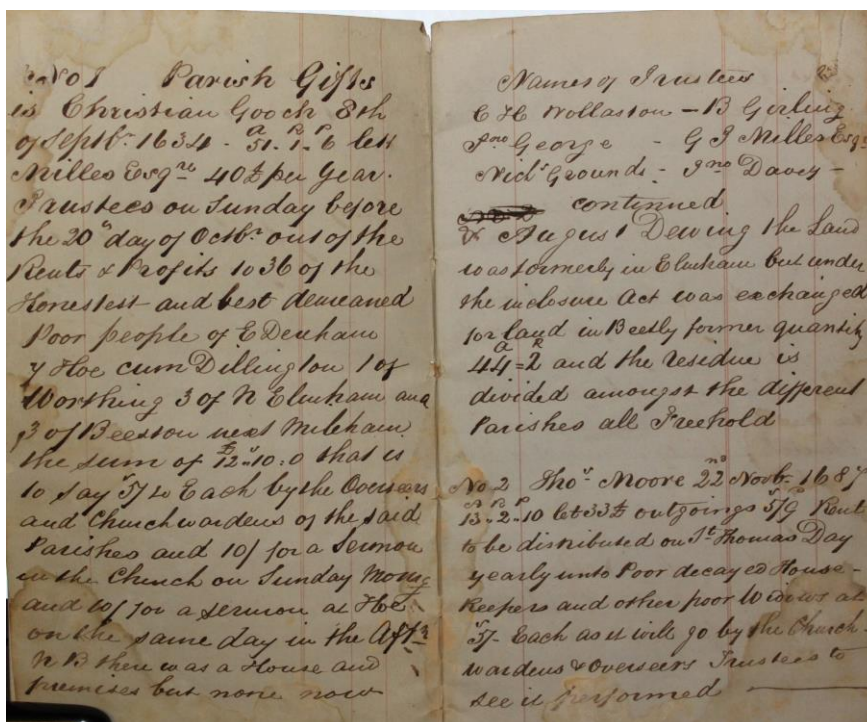 No 1 Parish Gifts
is Christian Gooch 8th
of Septbr 1634 - 51A. 1R. 6P let
Milles Esqre 40£ per Year.
Trustees on Sunday before
the 20th day of Octbr out of the
Rents & Profits to 36 of the
Honestest and best demeaned
Poor people of E Dereham
7 Hoe cum Dillington 1 of
Worthing 3 of N Elmham and
3 of Beeston next Mileham
the sum of £12"10s:0 that is
to say 5s/ to Each by the Overseers
and Churchwardens of the said
Parishes and 10/ for a Sermon
in the Church on Sunday Mong
and 10/ for a sermon at Hoe
on the same day in the Aftn
N B there was a House and
premises but none now
Names of Trustees
C H Wollaston - B Girling
Jno George - G J Milles Esqr
Nichs Grounds - Jno Davey -
continued
& August Dewing the Land
was formerly in Elmham but under
the inclosure Act was exchanged
for land in Beetly former quantity
44A = 2R and the residue is
divided amongst the different
Parishes all Freehold
No 2 Thos Moore 22nd Novbr 1687
13A"2R"10P let 33£ outgoings 5s/9D Rent
to be distributed on St Thomas Day
yearly unto Poor decayed House-
keepers and other poor Widows at
5s/- Each as it will go by the Church-
wardens & Overseers Trustees to
see it performed